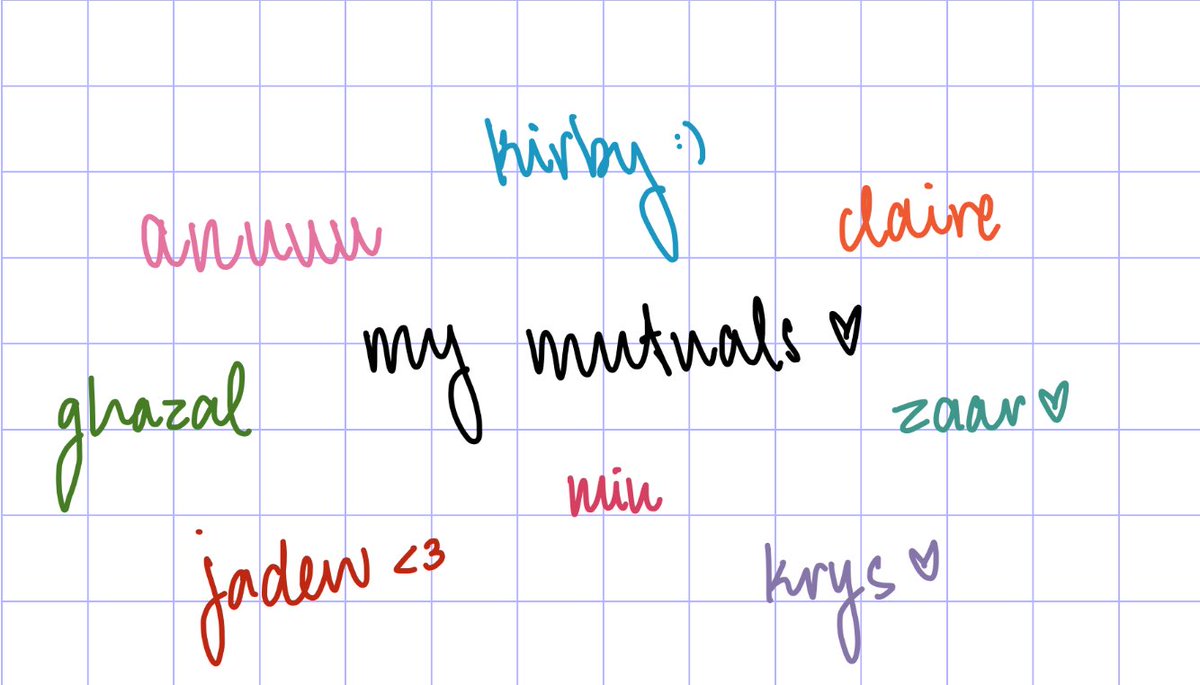 kirby :)
claire
anuuu
my mutuals ♡
ghazal
zaar ♡
min
jaden <3
krys ♡